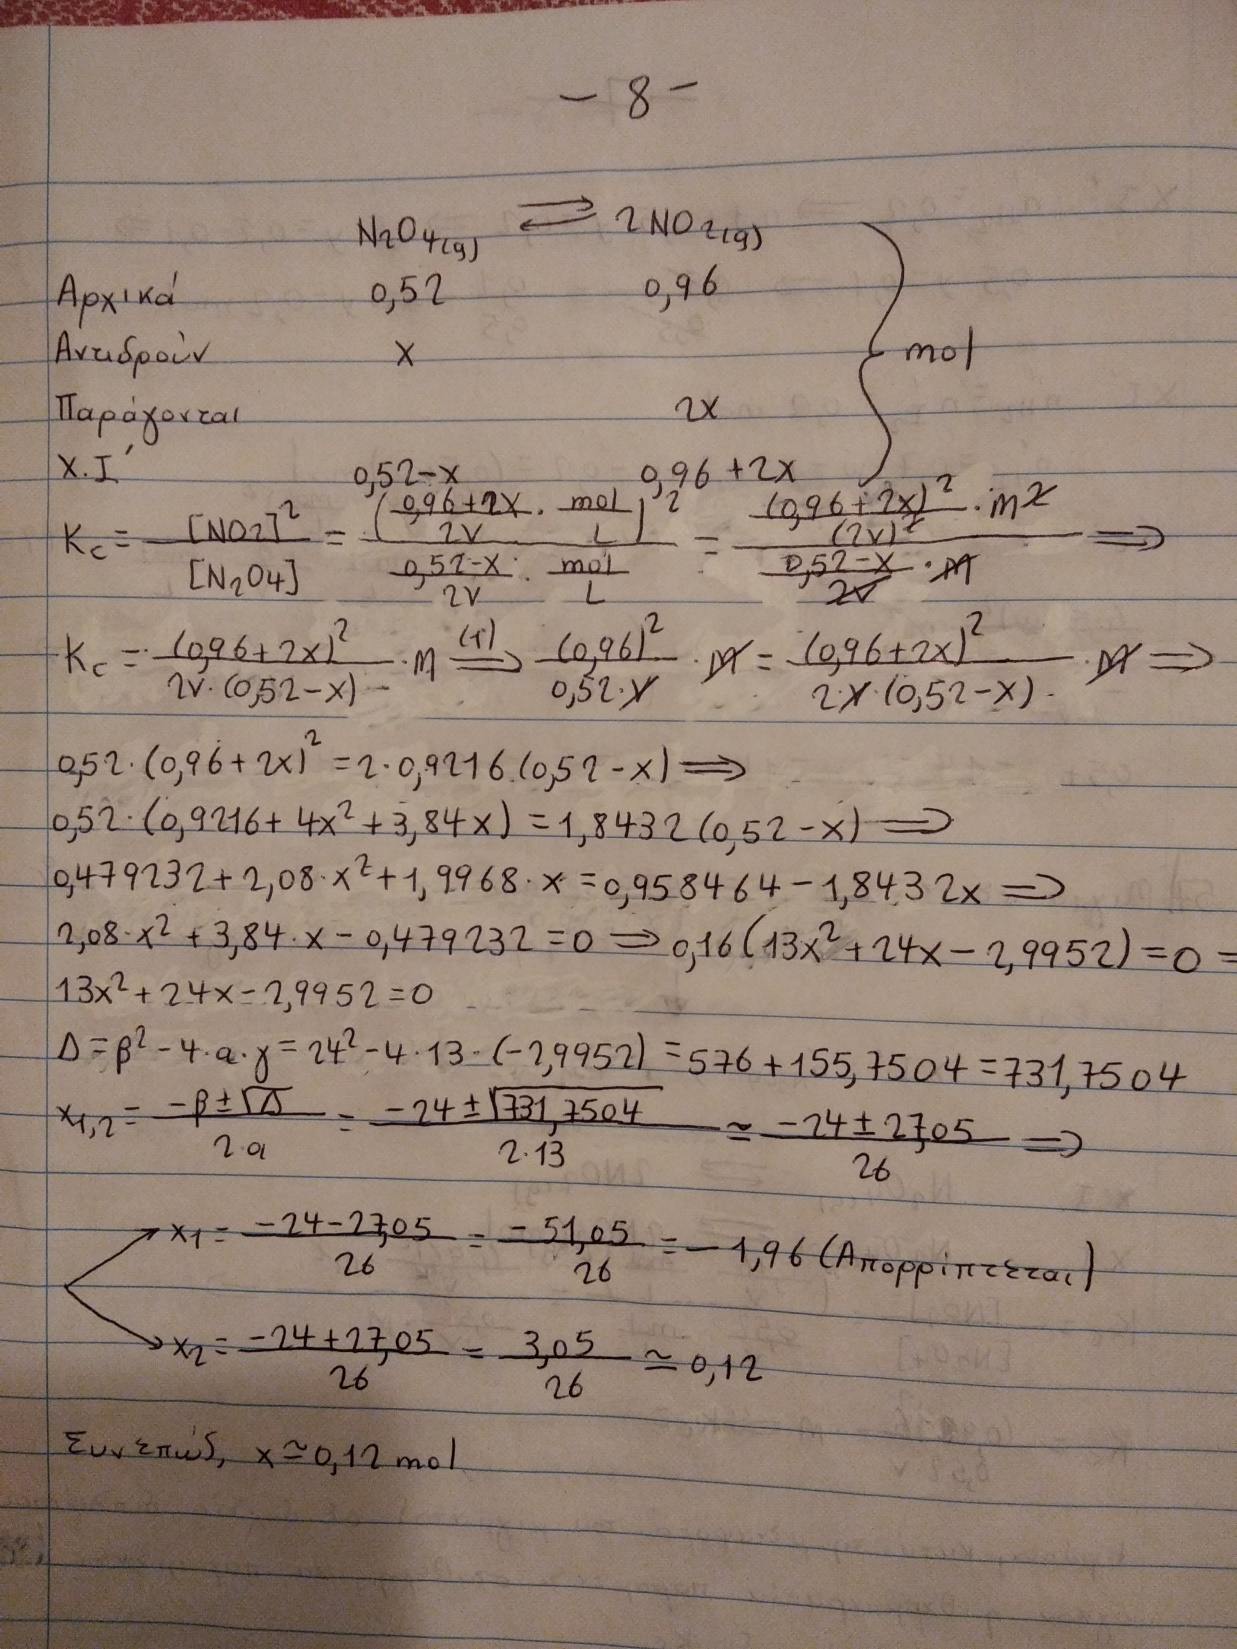 - 8 -
N2O4(g) ⇌ 2NO2(g)
Αρχικά 0,52 0,96
Αντιδρούν x
mol
Παράγονται 2x
Χ.Ι΄ 0,52-x 0,96+2x
Kc = [NO2]² / [N2O4] = ((0,96+2x)/2v · mol/L)² / ((0,52-x)/2v · mol/L) = ((0,96+2x)²/(2v)² · M²) / ((0,52-x)/2v · M) ⇒
Kc = (0,96+2x)² / (2v·(0,52-x)) · M (1)⇒ (0,96)² / (0,52·v) · M = (0,96+2x)² / (2·v·(0,52-x)) · M ⇒
0,52·(0,96+2x)² = 2·0,9216·(0,52-x) ⇒
0,52·(0,9216+4x²+3,84x) = 1,8432(0,52-x) ⇒
0,479232+2,08·x²+1,9968·x = 0,958464-1,8432x ⇒
2,08·x²+3,84·x-0,479232=0 ⇒ 0,16(13x²+24x-2,9952)=0 =
13x²+24x-2,9952=0
Δ=β²-4·α·γ=24²-4·13·(-2,9952)=576+155,7504=731,7504
x1,2 = (-β±√Δ) / (2·α) = (-24±√731,7504) / (2·13) ≃ (-24±27,05) / 26 ⇒
x1 = (-24-27,05) / 26 = -51,05 / 26 = -1,96 (Απορρίπτεται)
x2 = (-24+27,05) / 26 = 3,05 / 26 ≃ 0,12
Συνεπώς, x≃0,12 mol